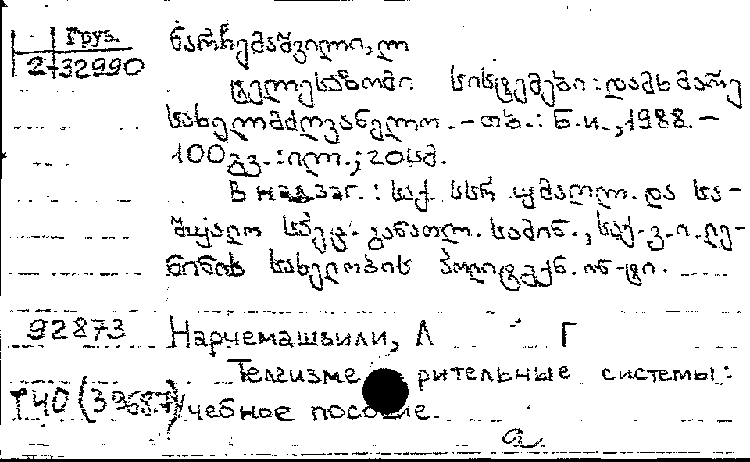 Груз.
2-32990
ნარჩემაშვილი, ლ
ტელესაზომი სისტემები: დამხმარე
სახელმძღვანელო. - თბ.: Б.и., 1988. -
100 გვ.: ილ.; 20 სმ.
В надзаг.: საქ. სსრ უმაღლ. და სა-
შუალო სპეც. განათლ. სამინ., საქ. ვ. ი. ლე-
ნინის სახელობის პოლიტექნ. ინ-ტი.
92873 Нарчемашвили, Л Г
Телеизме рительные системы:
T40(3968.7) учебное пособие.
а